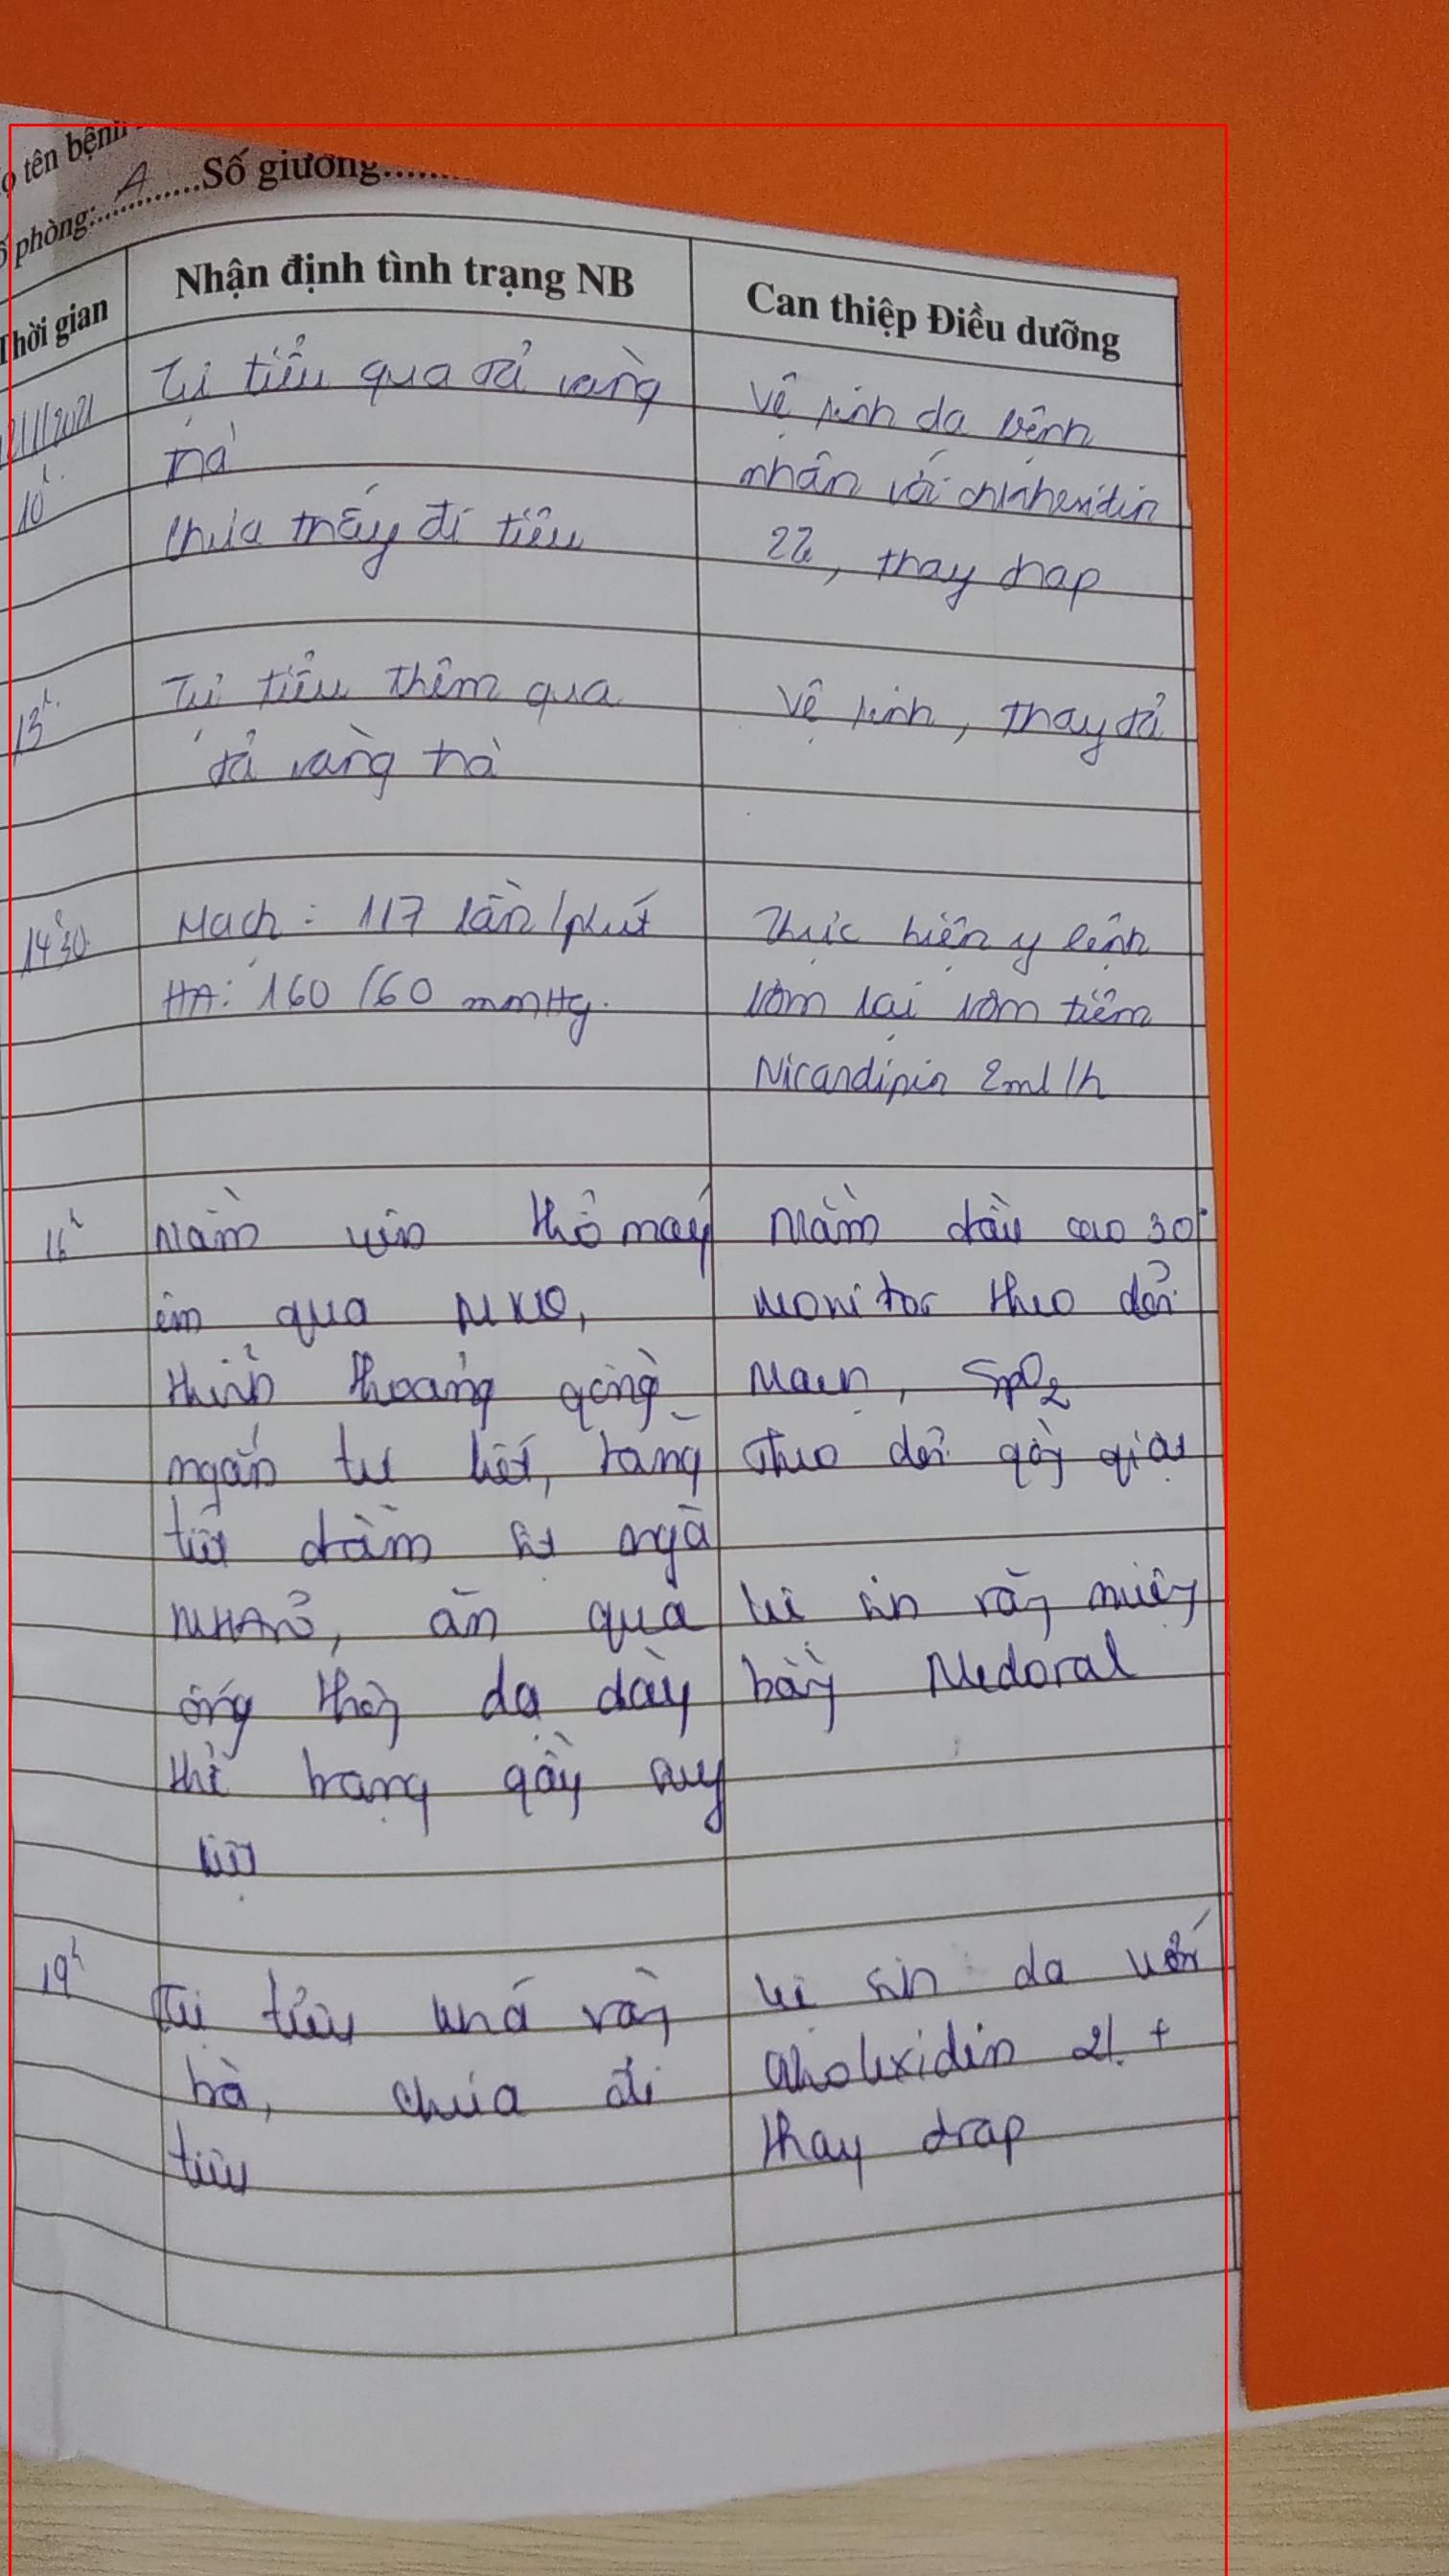 tên bệnh
phòng: A Số giường
Thời gian Nhận định tình trạng NB Can thiệp Điều dưỡng
Tự tiểu qua tả vàng
trà
chưa thấy đi tiêu
Vệ sinh da bệnh
nhân với
2%, thay drap
10h
13h
Tự tiểu thêm qua
tả vàng trà
Vệ sinh, thay tả
14h30
Mạch: 117 lần/phút
HA: 160/60 mmHg.
Thực hiện y lệnh
bơm lại bơm tiêm
Nicardipin 2ml/h
16h
Nằm yên thở máy
êm qua MKQ,
thỉnh thoảng gồng
ngắn tự hết, tăng
tiết đàm
ăn qua
ống thông dạ dày
thể trạng gầy suy
kiệt
Nằm đầu cao 30°
Monitor theo dõi
Mạch, SpO2
Theo dõi gồng giật
Vệ sin răng miệng
bằng Medoral
19h
Tự tiểu khá vàng
trà, chưa đi
tiêu
Vệ sin da với
2% +
thay drap